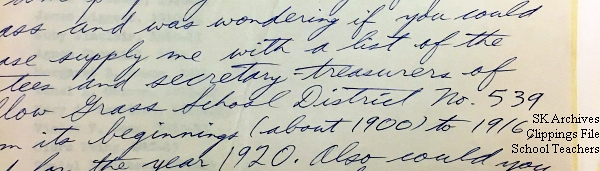 ass and was wondering if you could
ase supply me with a list of the
tees and secretary-treasurers of
llow Grass School District No. 539
m its beginnings (about 1900) to 1916
for the year 1920. Also could you
SK Archives
Clippings File
School Teachers